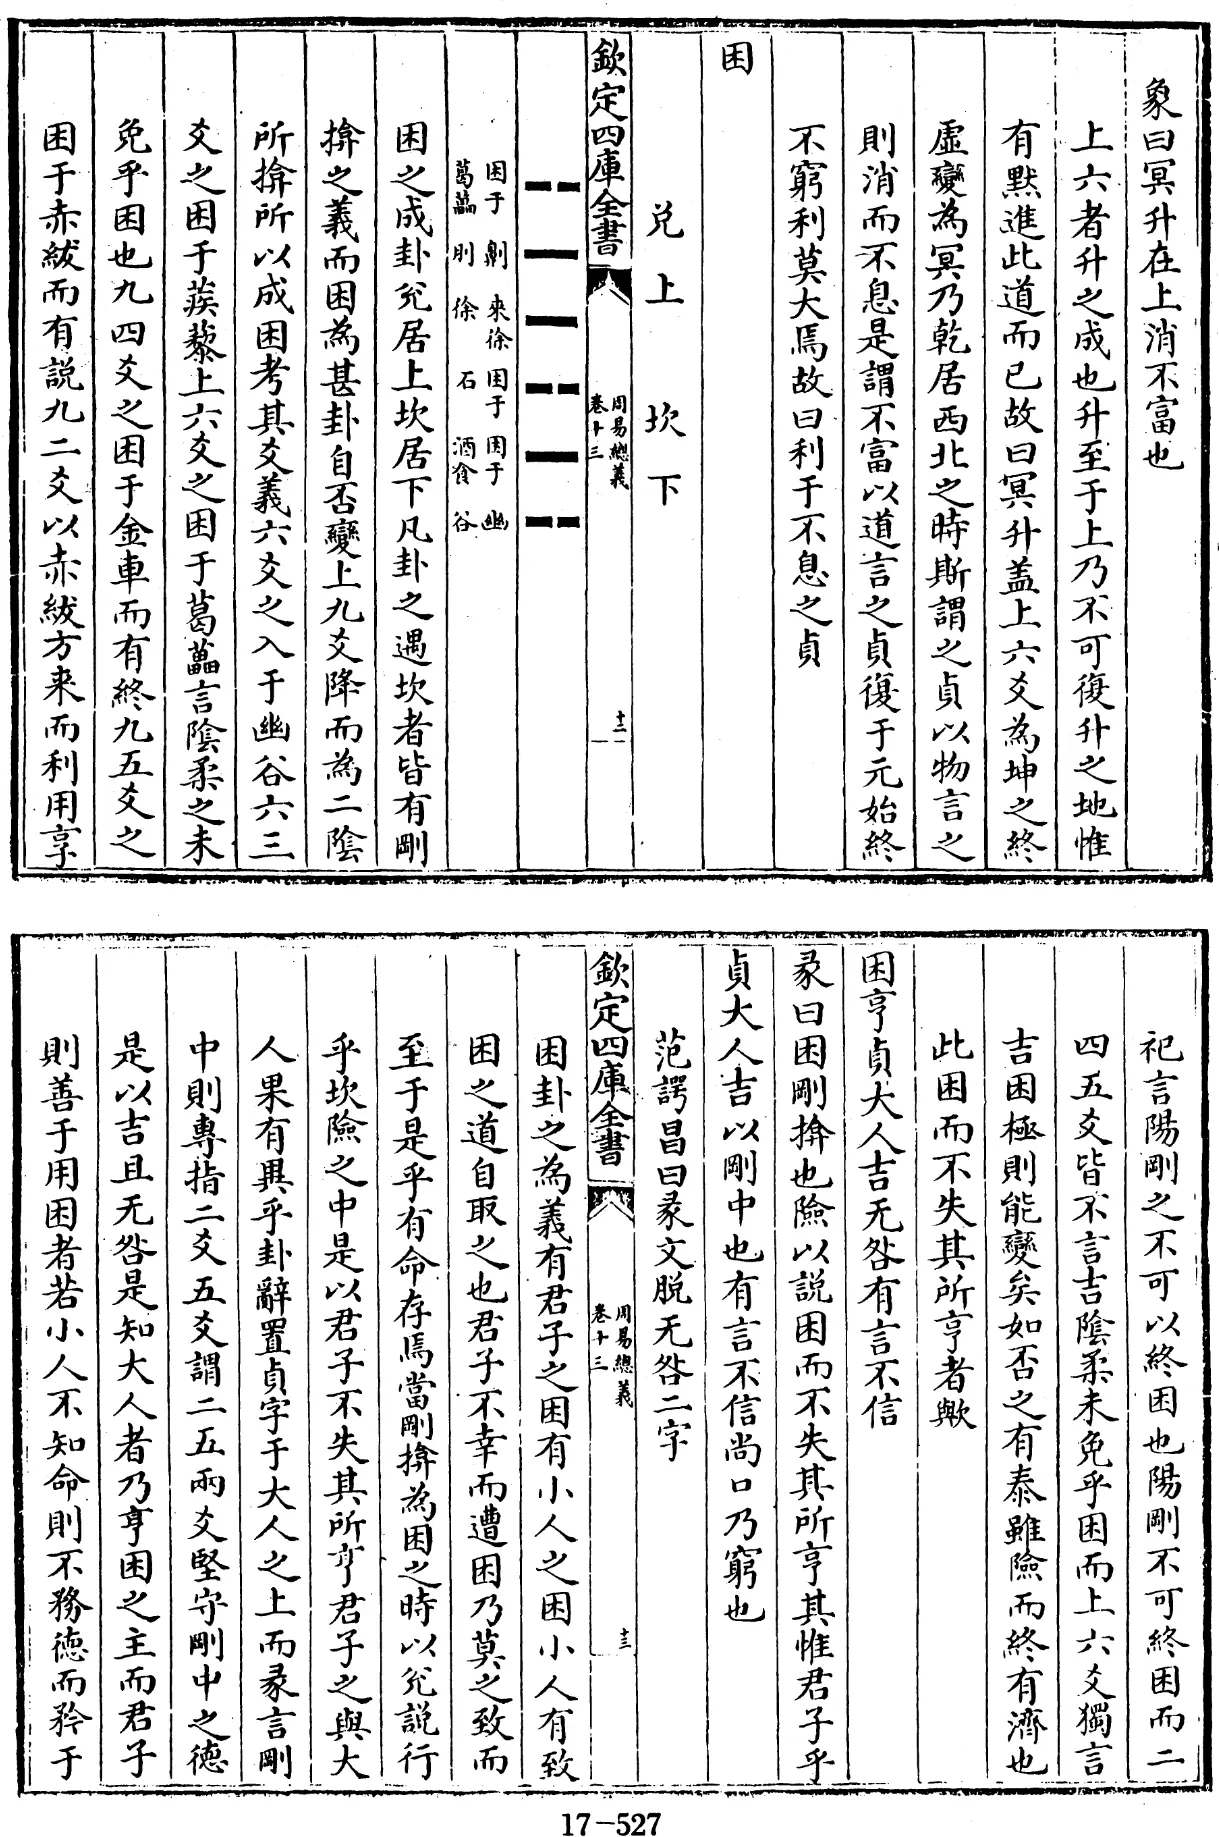 象曰冥升在上消不富也
上六者升之成也升至于上乃不可復升之地惟
有黙進此道而已故曰冥升盖上六爻為坤之終
虛變為冥乃乾居西北之時斯謂之貞以物言之
則消而不息是謂不富以道言之貞復于元始終
不窮利莫大焉故曰利于不息之貞
困
兑上坎下
欽定四庫全書
周易總義
卷十三
十二
困于葛藟
劓刖
來徐徐
困于石
困于酒食
幽谷
困之成卦兊居上坎居下凡卦之遇坎者皆有剛
揜之義而困為甚卦自否變上九爻降而為二陰
所揜所以成困考其爻義六爻之入于幽谷六三
爻之困于蒺藜上六爻之困于葛藟言陰柔之未
免乎困也九四爻之困于金車而有終九五爻之
困于赤紱而有説九二爻以赤紱方来而利用享
祀言陽剛之不可以終困也陽剛不可終困而二
四五爻皆不言吉陰柔未免乎困而上六爻獨言
吉困極則能變矣如否之有泰雖險而終有濟也
此困而不失其所亨者歟
困亨貞大人吉无咎有言不信
彖曰困剛揜也險以説困而不失其所亨其惟君子乎
貞大人吉以剛中也有言不信尚口乃窮也
范諤昌曰彖文脱无咎二字
欽定四庫全書
周易總義
卷十三
十三
困卦之為義有君子之困有小人之困小人有致
困之道自取之也君子不幸而遭困乃莫之致而
至于是乎有命存焉當剛揜為困之時以兊説行
乎坎險之中是以君子不失其所亨君子之與大
人果有異乎卦辭置貞字于大人之上而彖言剛
中則專指二爻五爻謂二五兩爻堅守剛中之徳
是以吉且无咎是知大人者乃亨困之主而君子
則善于用困者若小人不知命則不務徳而矜于
17-527